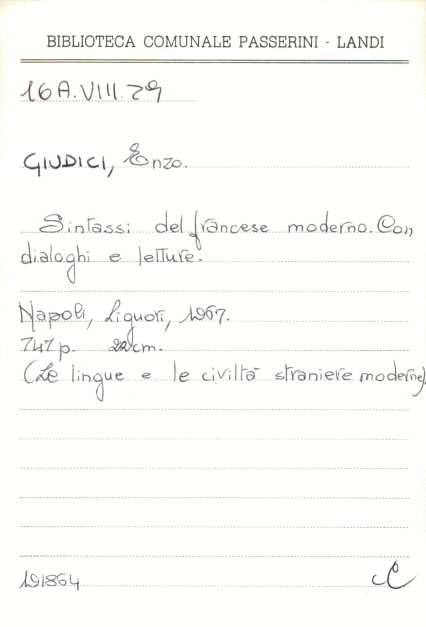 BIBLIOTECA COMUNALE PASSERINI - LANDI
16A.VIII.29
GIUDICI, Enzo.
Sintassi del francese moderno. Con
dialoghi e letture.
Napoli, Liguori, 1967.
747 p. 22 cm.
(Le lingue e le civiltà straniere moderne).
191864 C